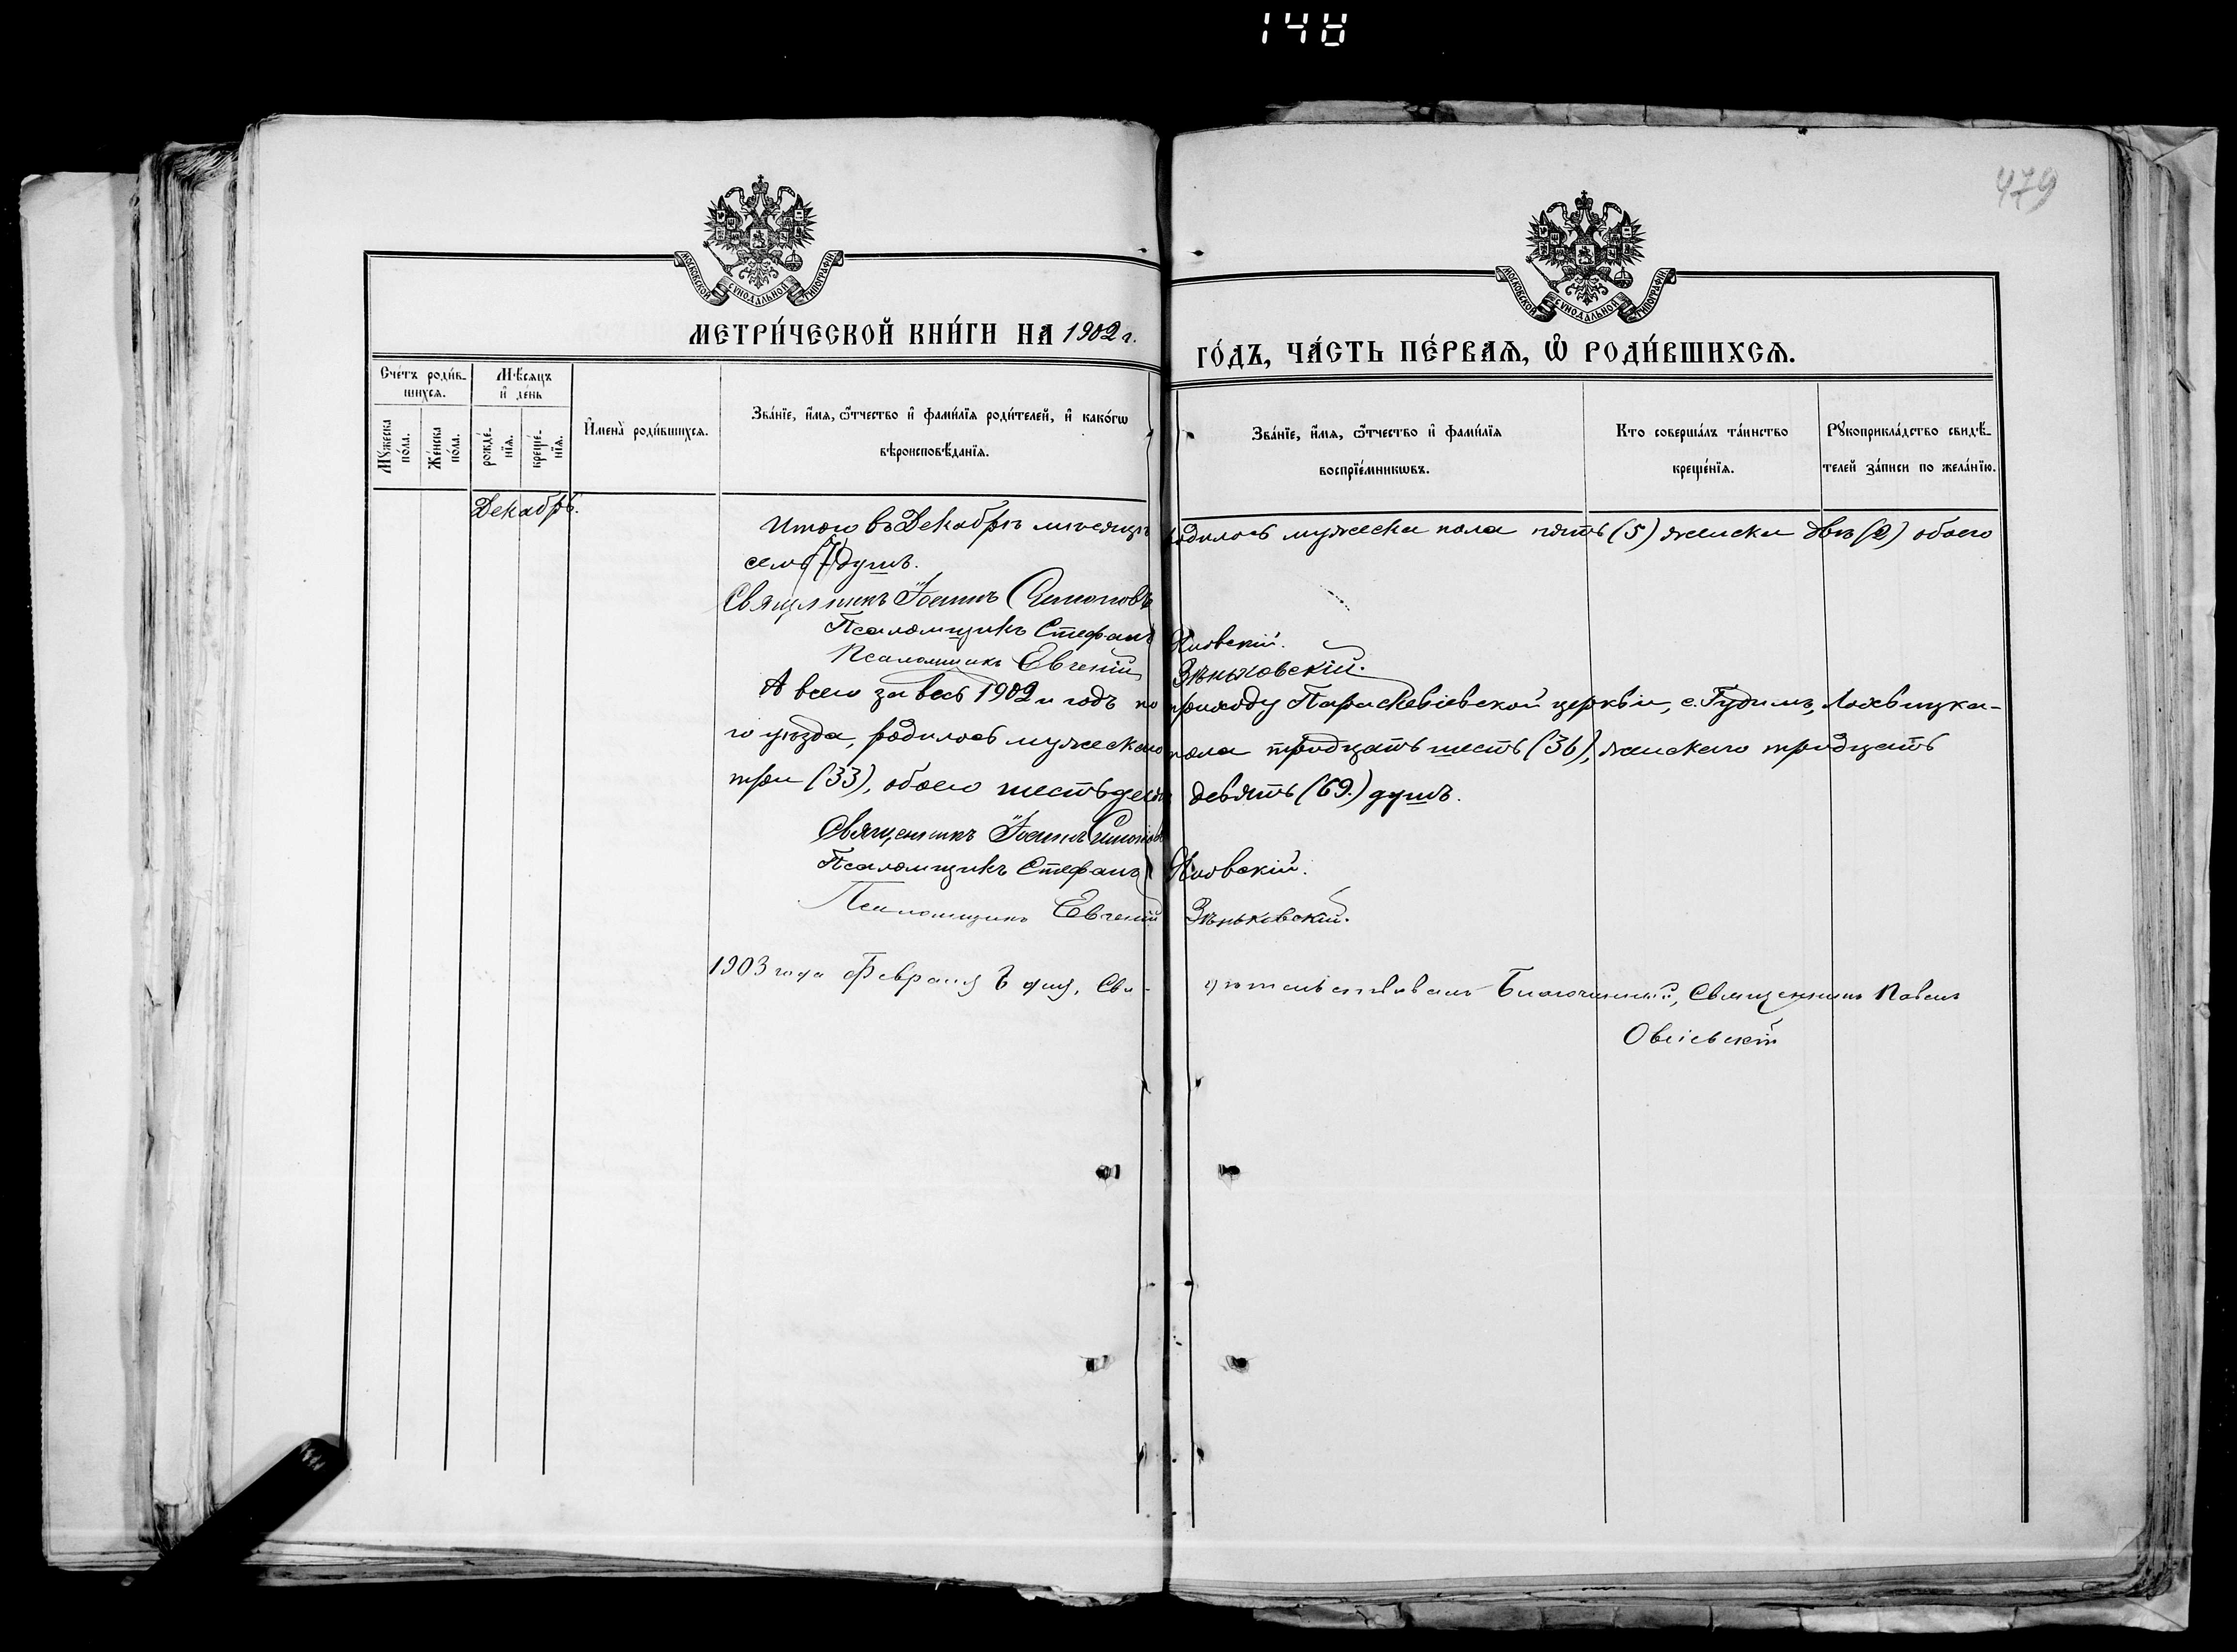 148
479
МОСКОВСКОЙ СУНОДАЛЬНОЙ ТИПОГРАФІИ
МОСКОВСКОЙ СУНОДАЛЬНОЙ ТИПОГРАФІИ
МЕТРИ́ЧЕСКОЙ КНИ́ГИ НА 1902 г. ГО́ДЪ, ЧА́СТЬ ПЕ́РВАѦ, Ѡ РОДИ́ВШИХСѦ.
Сче́тъ роди́в-
шихсѧ.
Мꙋ́жеска по́ла.
Же́нска по́ла.
Мѣ́сѧцъ
и҆ де́нь
рожде́-
нїѧ.
креще́-
нїѧ.
И҆мена̀ роди́вшихсѧ.
Зва́нїе, и҆́мѧ, ѻ҆́тчество и҆ фами́лїѧ роди́телей, и҆ како́гѡ
вѣроисповѣ́данїѧ.
Зва́нїе, и҆́мѧ, ѻ҆́тчество и҆ фами́лїѧ
воспрїе́мникѡвъ.
Кто соверша́лъ та́инство
креще́нїѧ.
Рꙋкоприкла́дство свидѣ́-
телей за́писи по жела́нїю.
Декабрь.
Итого въ Декабрѣ мѣсяцѣ родилось мужеска пола пять (5) женска двѣ (2) обоего
семь (7) душъ.
Священникъ Іоаннъ Симоновъ
Псаломщикъ Стефанъ Яновскій.
Псаломщикъ Евгеній Зѣньковскій.
А всего за весь 1902 й годъ по приходу Параскевіевской церкви, с. Гудимъ, Лохвицка-
го уѣзда, родилось мужескаго пола тридцать шесть (36), женскаго тридцать
три (33), обоего шестьдесятъ девять (69.) душъ.
Священникъ Іоаннъ Симоновъ
Псаломщикъ Стефанъ Яновскій.
Псаломщикъ Евгеній Зѣньковскій.
1903 года Февраля 6 дня, Сви-дѣтельствовалъ Благочинный, Священникъ Павелъ